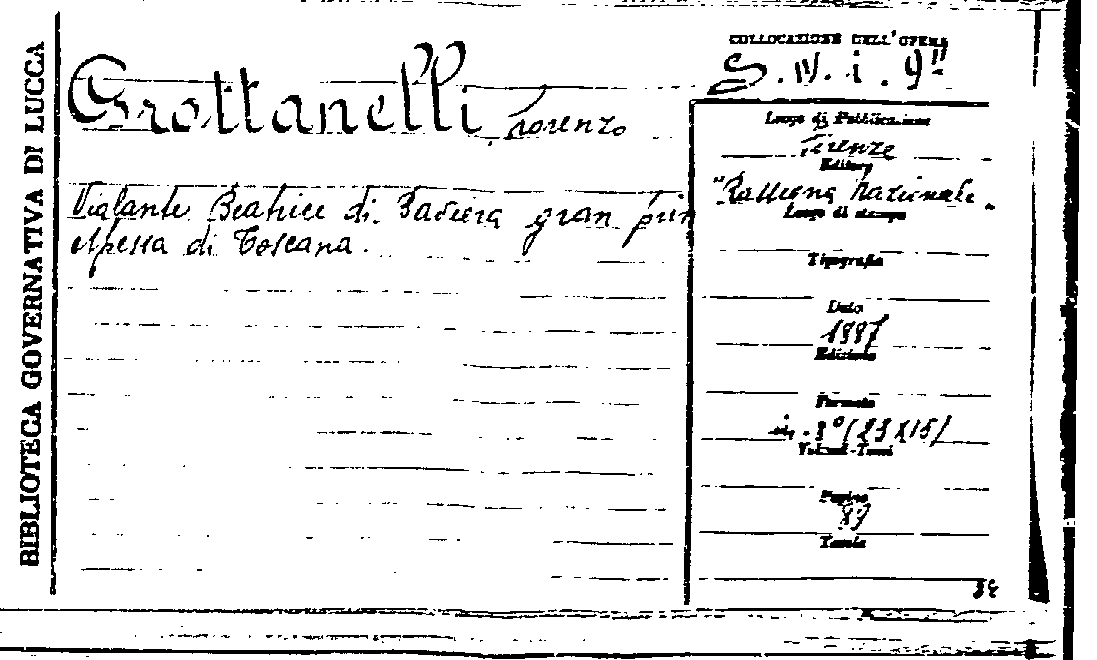 BIBLIOTECA GOVERNATIVA DI LUCCA
COLLOCAZIONE DELL'OPERA
S. IV. i. 9
Grottanelli, Lorenzo
Violante Beatrice di Baviera gran prin
cipessa di Toscana.
Luogo di Pubblicazione
Firenze
Editore
"Rassegna Nazionale"
Luogo di stampa
Tipografia
Data
1887
Edizione
Formato
in-8° (23X15)
Volumi-Tomi
Pagine
Tavole